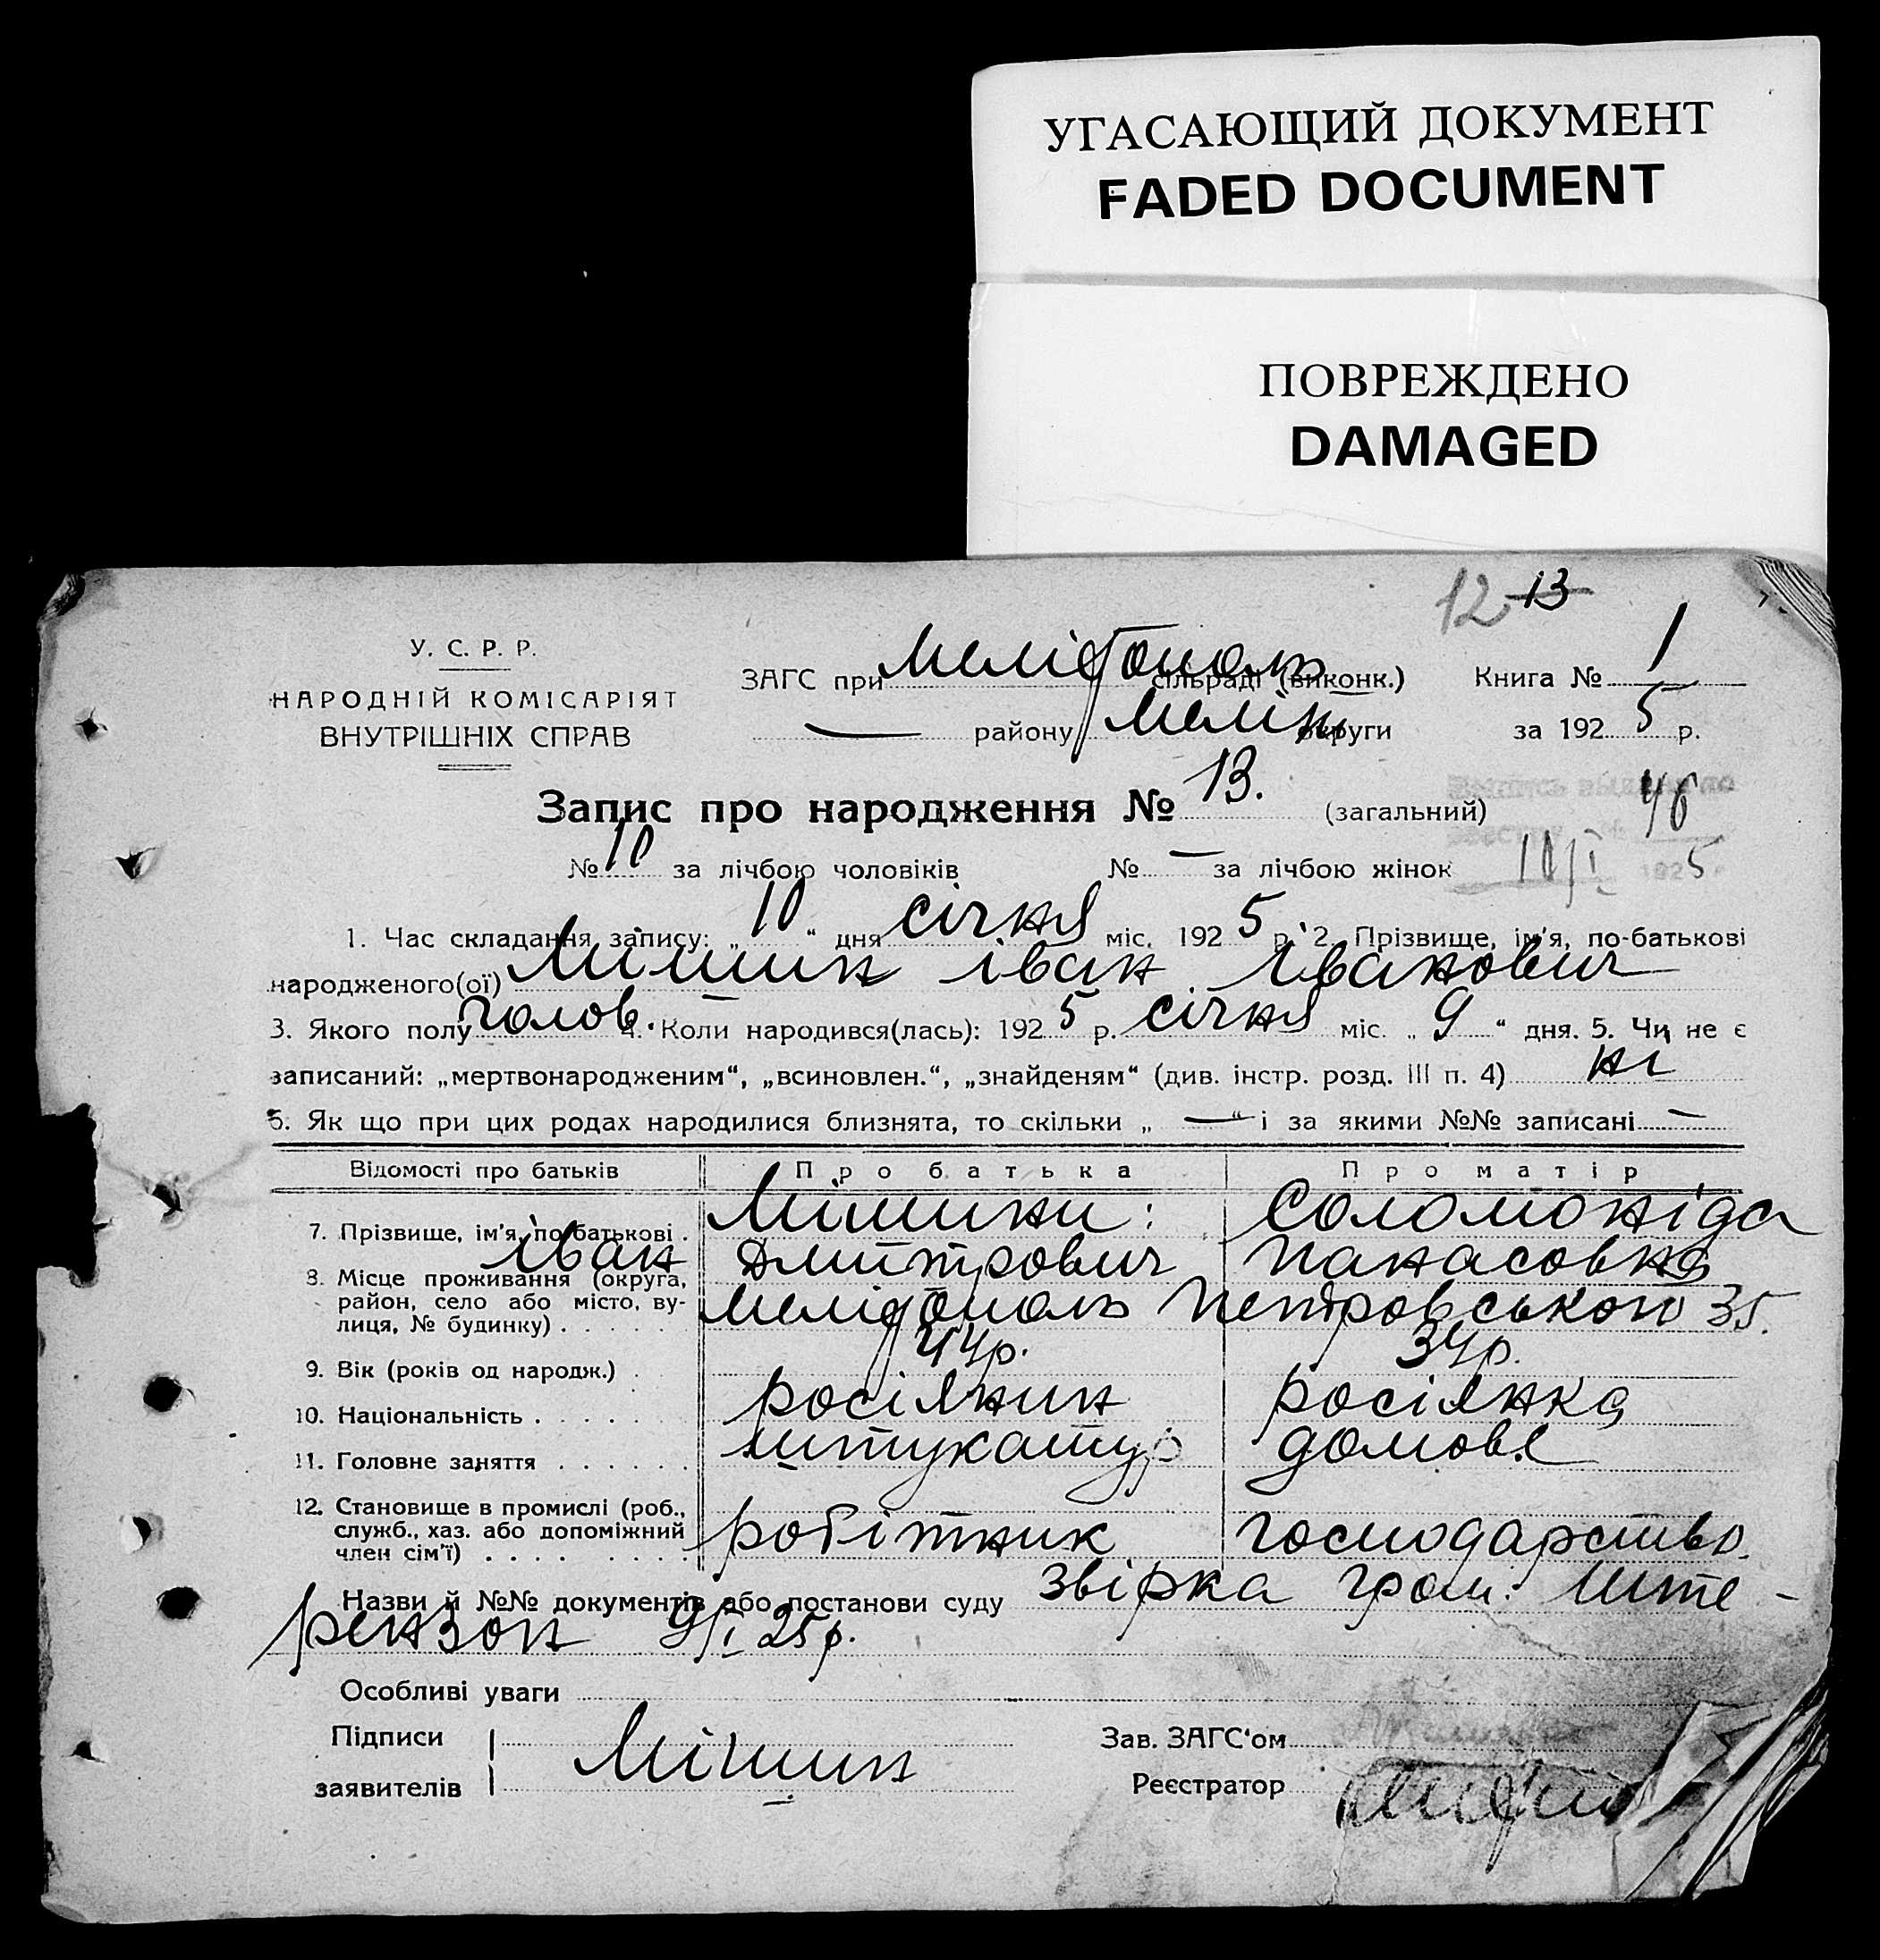 УГАСАЮЩИЙ ДОКУМЕНТ
FADED DOCUMENT
ПОВРЕЖДЕНО
DAMAGED
12 13
У. С. Р. Р.
НАРОДНІЙ КОМІСАРІЯТ
ВНУТРІШНІХ СПРАВ
ЗАГС при Мелітополь сільраді (виконк.) Книга № 1
— району Меліт. округи за 1925 р.
Запис про народження № 13. (загальний) 46
№ 10 за лічбою чоловіків № — за лічбою жінок 10/I 1925
1. Час складання запису: „10“ дня січня міс. 1925 р. 2. Прізвище, ім'я, по-батькові
народженого(ої) Мішин Іван Іванович
3. Якого полу чолов. 4. Коли народився(лась): 1925 р. січня міс. „9“ дня. 5. Чи не є
записаний: „мертвонародженим“, „всиновлен.“, „знайденям“ (див. інстр. розд. III п. 4) ні
6. Як що при цих родах народилися близнята, то скільки „—“ і за якими №№ записані —
Відомості про батьків Про батька Про матір
7. Прізвище, ім'я, по-батькові. Мішини: Соломоніда
Іван Дмитрович Панасовна
8. Місце проживання (округа,
район, село або місто, ву-
лиця, № будинку) . . . . . . Мелітополь Петровського 35.
9. Вік (років од народж.) . 44р. 34р.
10. Національність . . . . . . росіянин росіянка
11. Головне заняття . . . . . . штукатур домовє
12. Становище в промислі (роб.,
служб., хаз. або допоміжний
член сім'ї) . . . . . . . . робітник господарство.
Назви й №№ документів або постанови суду звірка гром. Ште-
рензон 9/I 25р.
Особливі уваги
Підписи
заявителів Мішин
Зав. ЗАГС'ом
Реєстратор